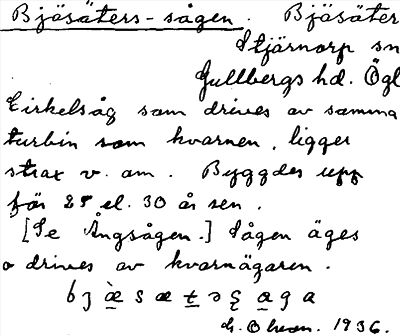 Bjäsäters-sågen. Bjäsäter
Stjärnorp sn
Gullbergs hd. Ögl
Cirkelsåg som drives av samma
turbin som kvarnen, ligger
strax v. om. Byggdes upp
för 25 el. 30 år sen.
[Se Ångsågen.] Sågen äges
o drives av kvarnägaren.
1936.